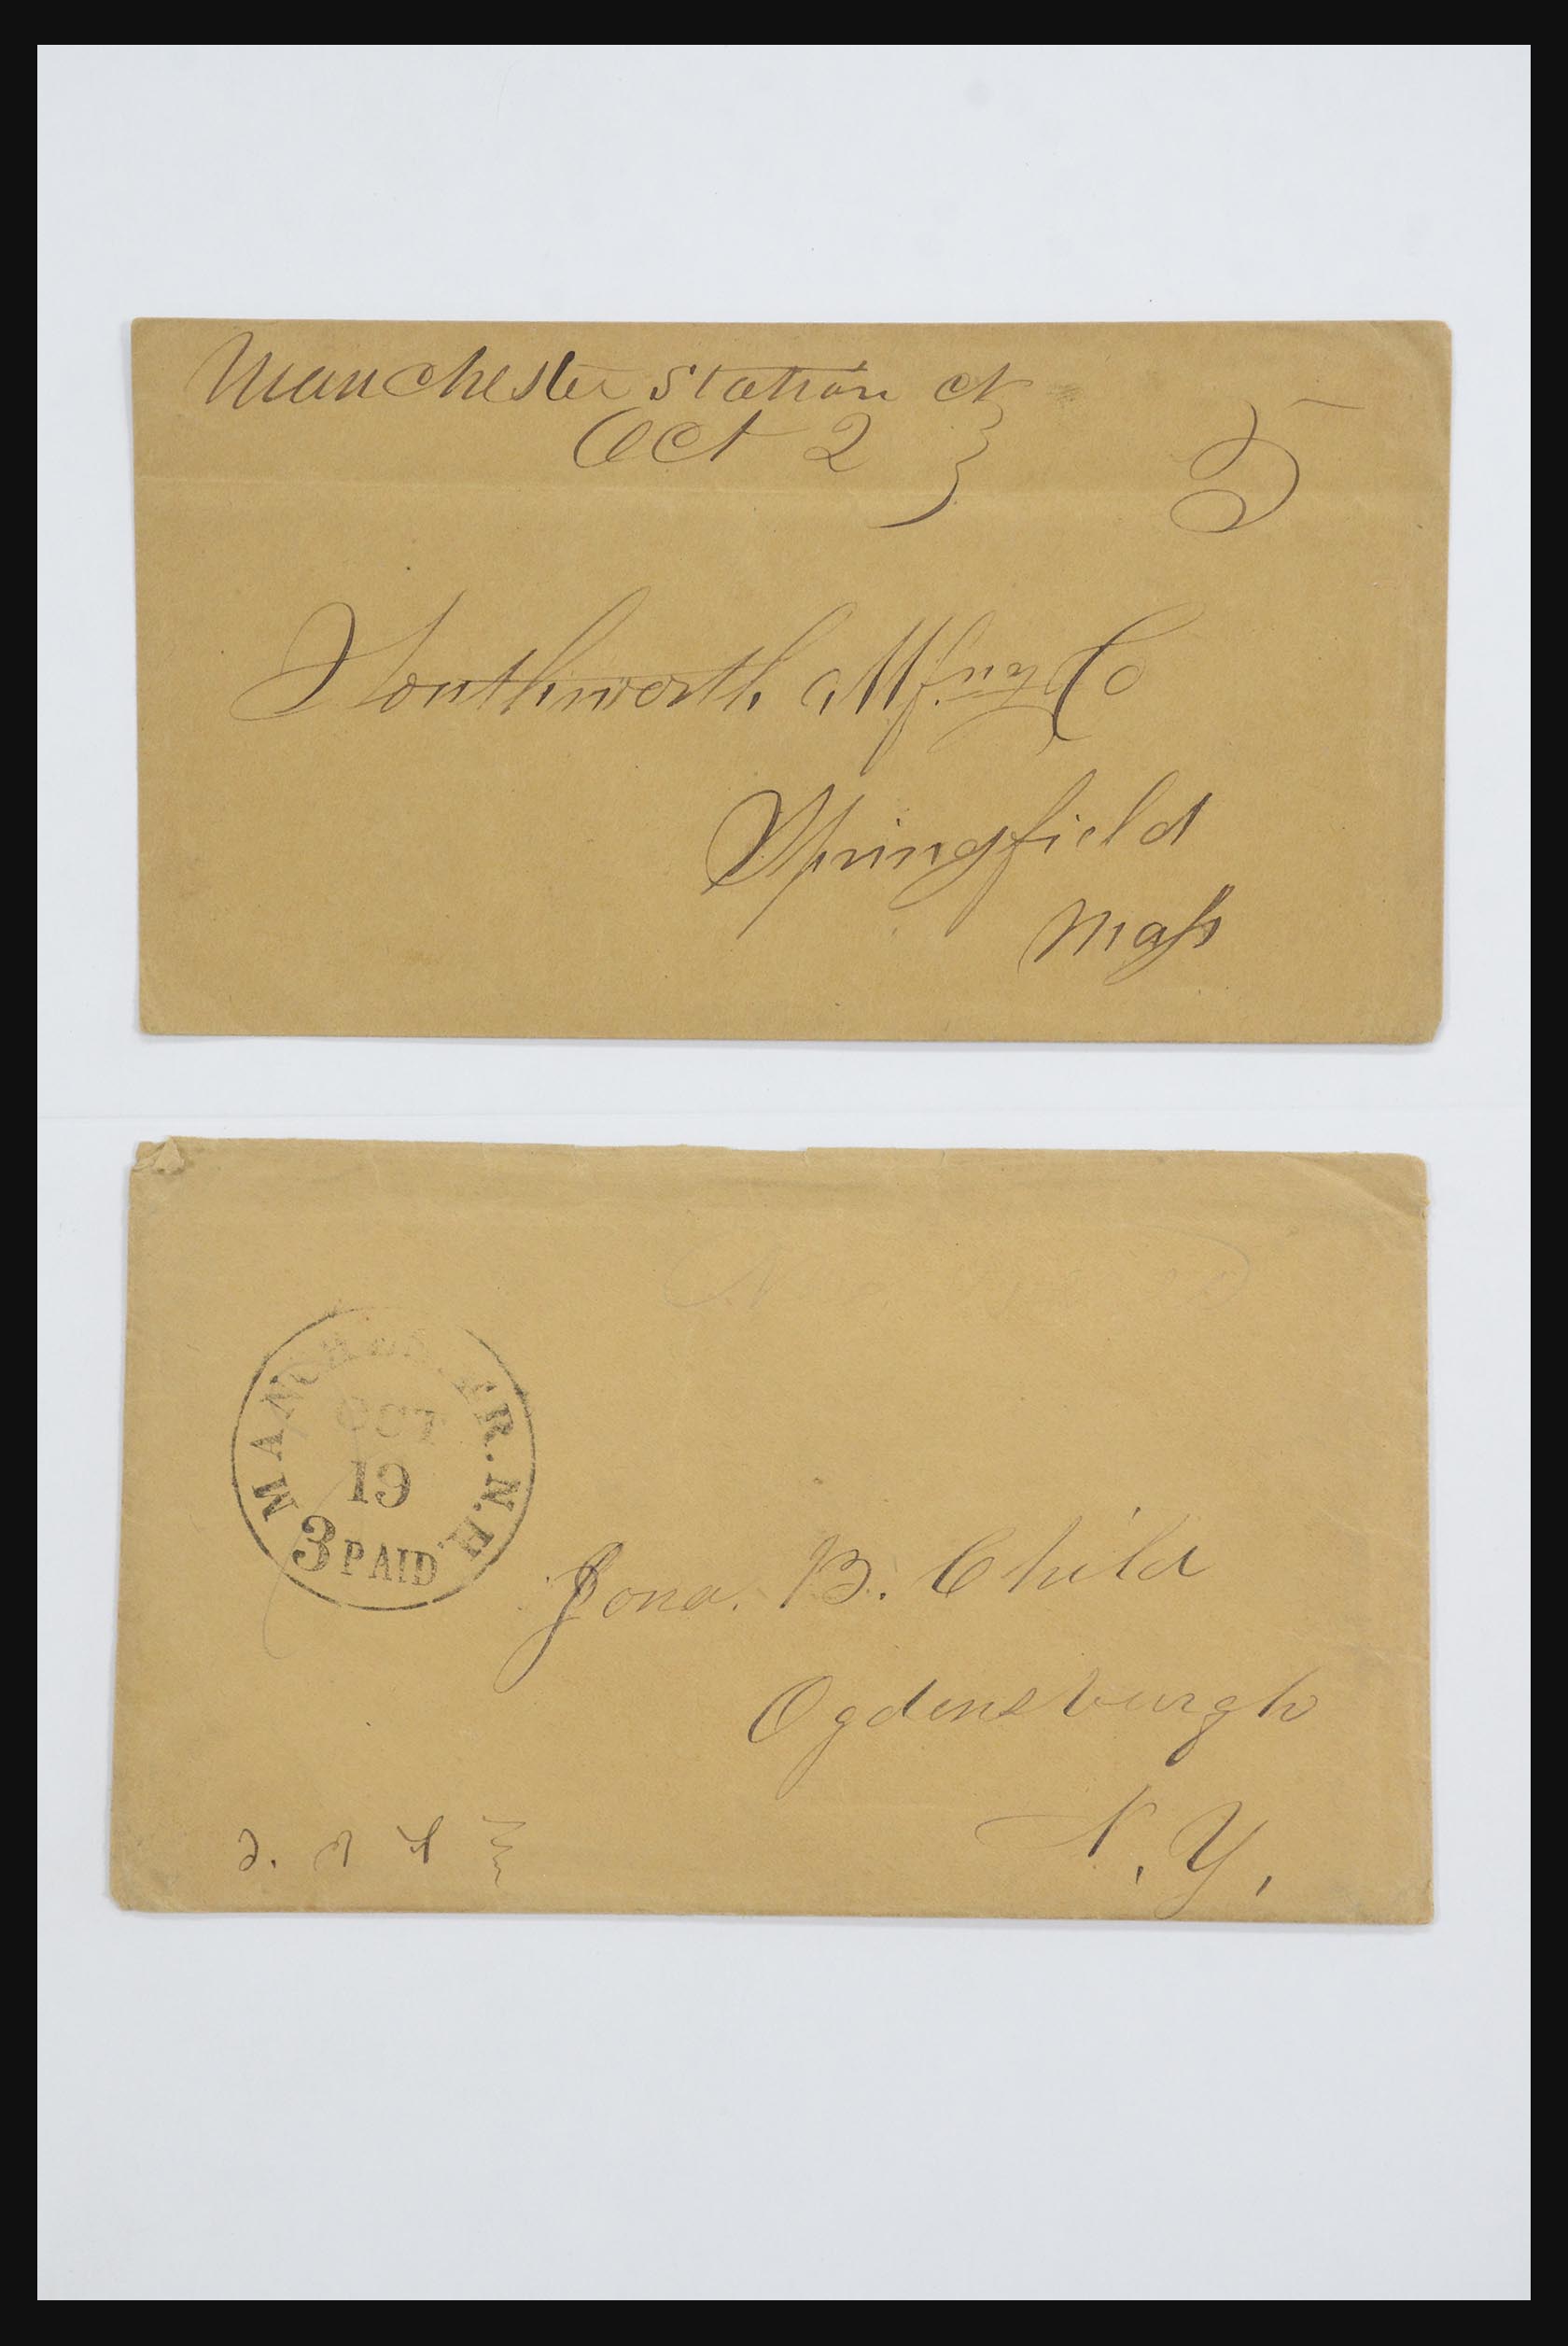 Manchester Station Ct
Oct 2
5
Southworth Mfng Co
Springfield
Mass
MANCHESTER. N.H.
OCT
19
3 PAID
Jona. B. Child
Ogdensburgh
N.Y.